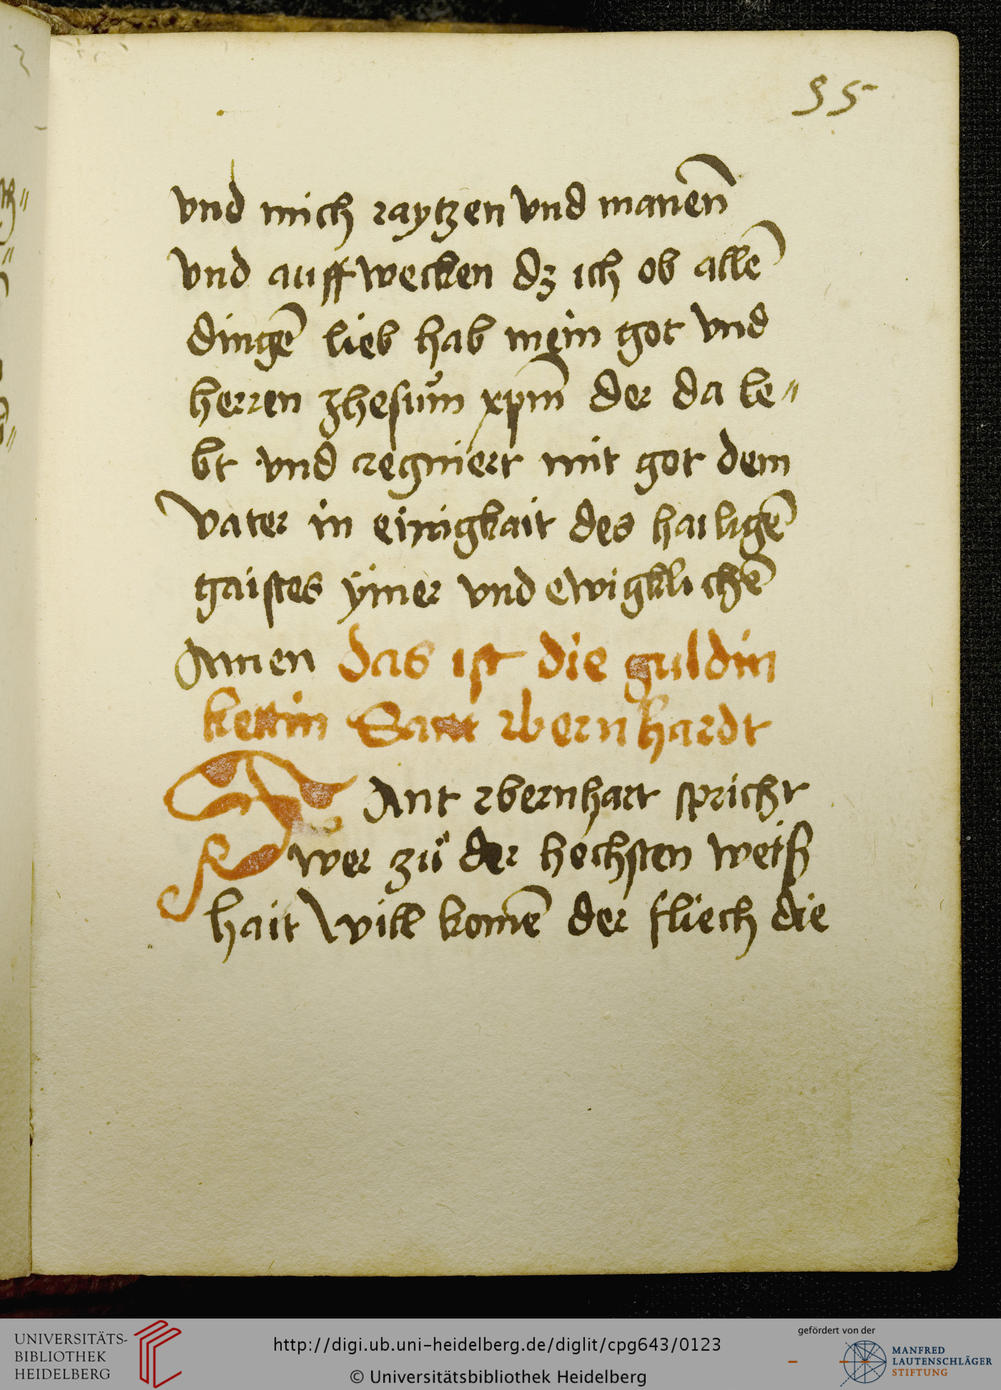 55
vnd mich raytzen vnd manen̄
vnd auffwecken dz ich ob allē
dingē lieb hab mein got vnd
herren Jhesum̄ xp̄m der da le〃
bt vnd regniert mit got dem
vater in einigkait des hailigē
gaistes ym̄er vnd ewigklichē
Amen das ist die guldin
kettin Sant bernhardt
SAnt bernhart spricht
wer zů der hechsten weiß
hait will komē der fliech die
UNIVERSITÄTS-
BIBLIOTHEK
HEIDELBERG
http://digi.ub.uni-heidelberg.de/diglit/cpg643/0123
© Universitätsbibliothek Heidelberg
gefördert von der
MANFRED
LAUTENSCHLÄGER
STIFTUNG